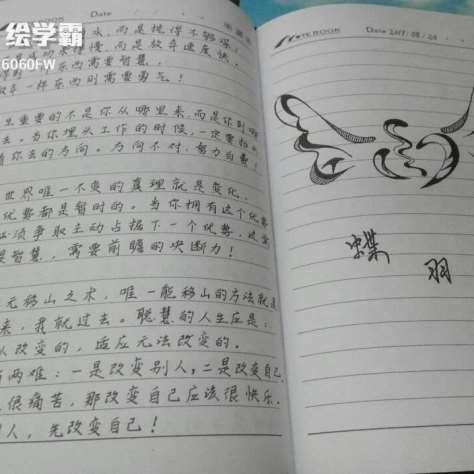 绘学霸
6060FW
Date
水,而是挖得不够深。
慢,而是放弃速度快。
得到一样东西需要智慧,
放弃一样东西则需要勇气!
生重要的不是你从哪里来,而是你到哪
去。为你埋头工作的时候,一定要抬
看你去的方向。方向不对,努力白费!
世界唯一不变的真理就是变化,
优势都是暂时的。当你拥有这个优势
必须争取主动占据下一个优势,这
是智慧,需要前瞻的决断力!
无移山之术,唯一能移山的方法就是
来,我就过去。聪慧的人生应是:
以改变的,适应无法改变的。
有两难:一是改变别人,二是改变自己。
很痛苦,那改变自己应该很快乐。
人,先改变自己!
NOTE BOOK
Date 2017/08/20
蝶
羽